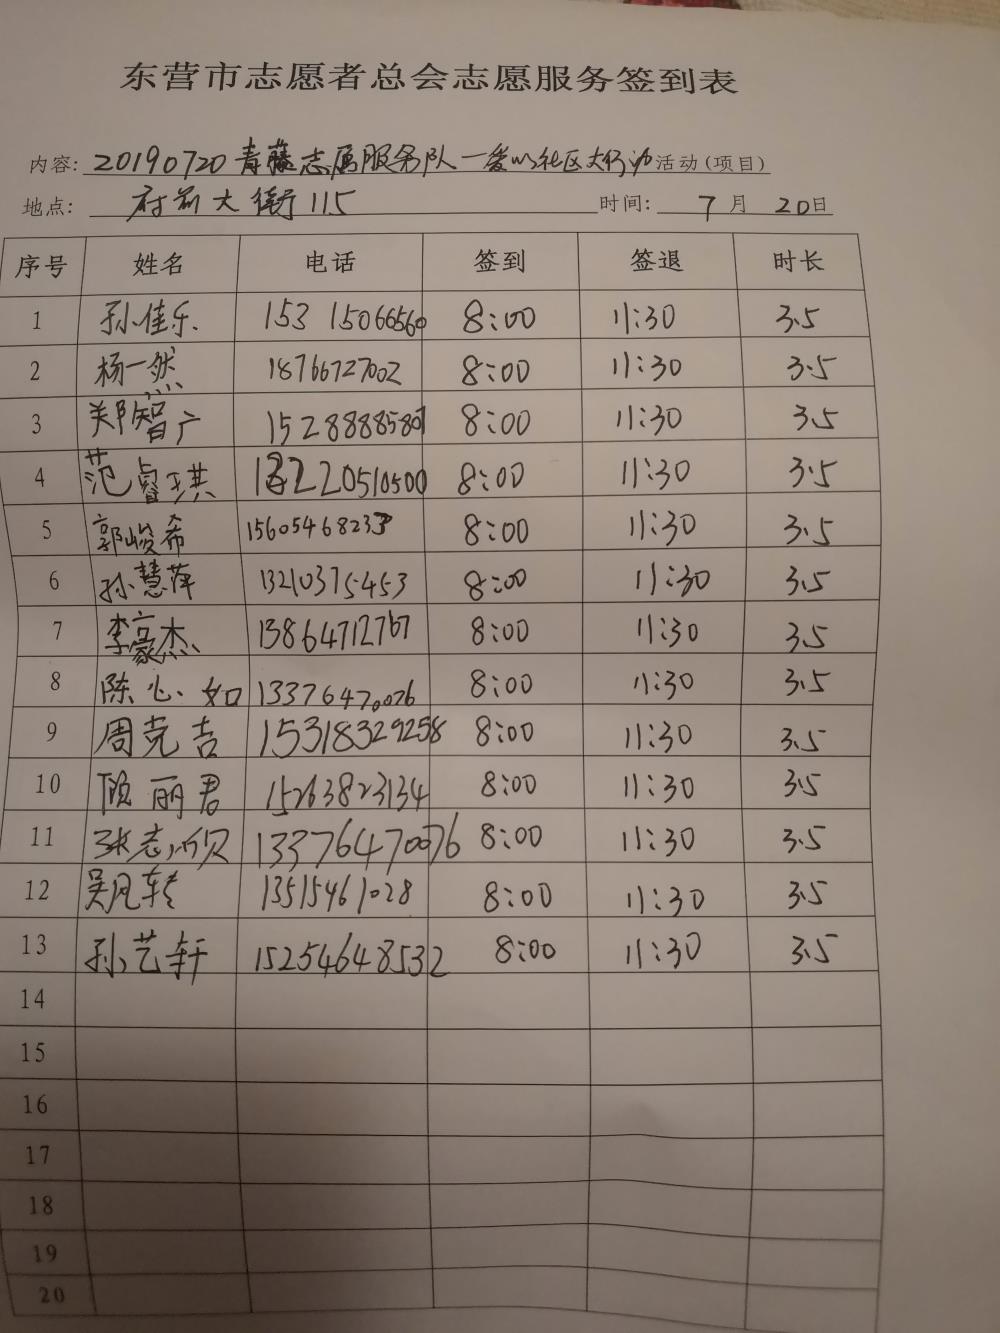 东营市志愿者总会志愿服务签到表
内容: 20190720青藤志愿服务队一爱心社区大行动 活动(项目)
地点: 府前大街115 时间: 7月20日
序号 姓名 电话 签到 签退 时长
1 孙佳乐 15315066560 8:00 11:30 3.5
2 杨一然 18766727002 8:00 11:30 3.5
3 郑智广 15288885801 8:00 11:30 3.5
4 范睿琪 13220510500 8:00 11:30 3.5
5 郭峻希 15605468233 8:00 11:30 3.5
6 孙慧萍 13210375453 8:00 11:30 3.5
7 李豪杰 13864712767 8:00 11:30 3.5
8 陈心如 13376470076 8:00 11:30 3.5
9 周克吉 15318329258 8:00 11:30 3.5
10 顾丽君 15263823134 8:00 11:30 3.5
11 张志 13376470076 8:00 11:30 3.5
12 吴凡转 13515461028 8:00 11:30 3.5
13 孙艺轩 15254648532 8:00 11:30 3.5
14
15
16
17
18
19
20